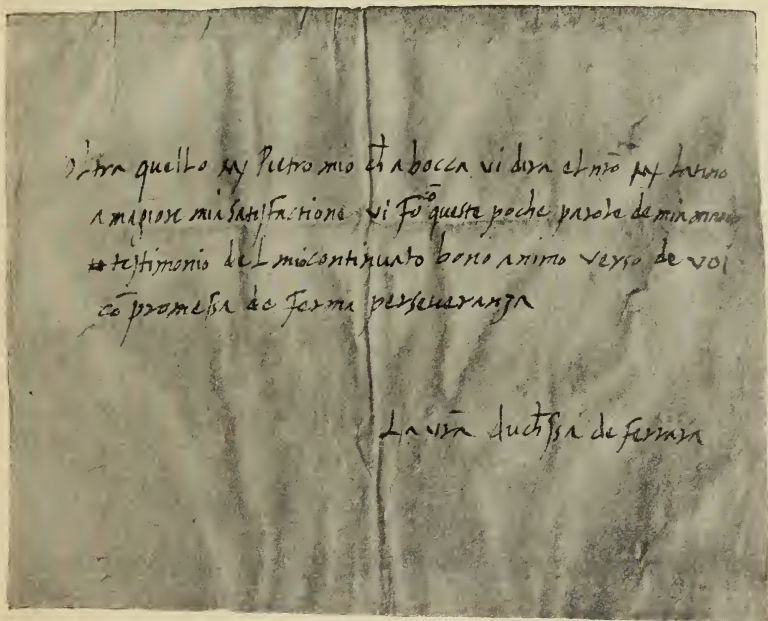 oltra quello Mr Pietro mio ch̄ a bocca vi dira el nr̄o Mr Latino
a magiore mia satisfactione vi fo cō queste poche parole de mia mano
testimonio del mio continuato bono animo verso de voi
cō promessa de ferma perseveranza
La vr̄a duch̄ssa de ferrara